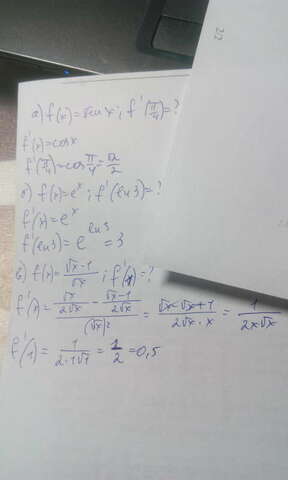 а) f(x)=sin x; f'(π/4)=?
f'(x)=cosx
f'(π/4)=cos π/4=√2/2
б) f(x)=e^x; f'(ln3)=?
f'(x)=e^x
f'(ln3)=e^ln3=3
в) f(x)=(√x-1)/√x; f'(1)=?
f'(x)=(√x/(2√x) - (√x-1)/(2√x))/(√x)²=(√x-√x+1)/(2√x·x)=1/(2x√x)
f'(1)=1/(2·1√1)=1/2=0,5